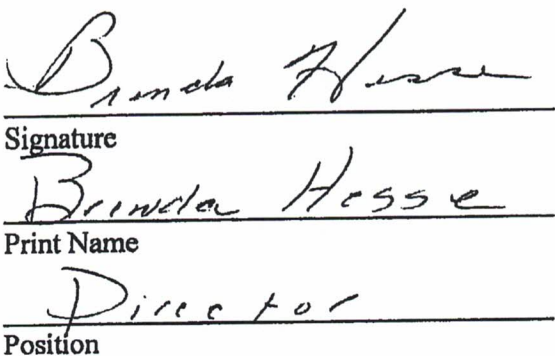 Brenda Hesse
Signature
Brenda Hesse
Print Name
Director
Position